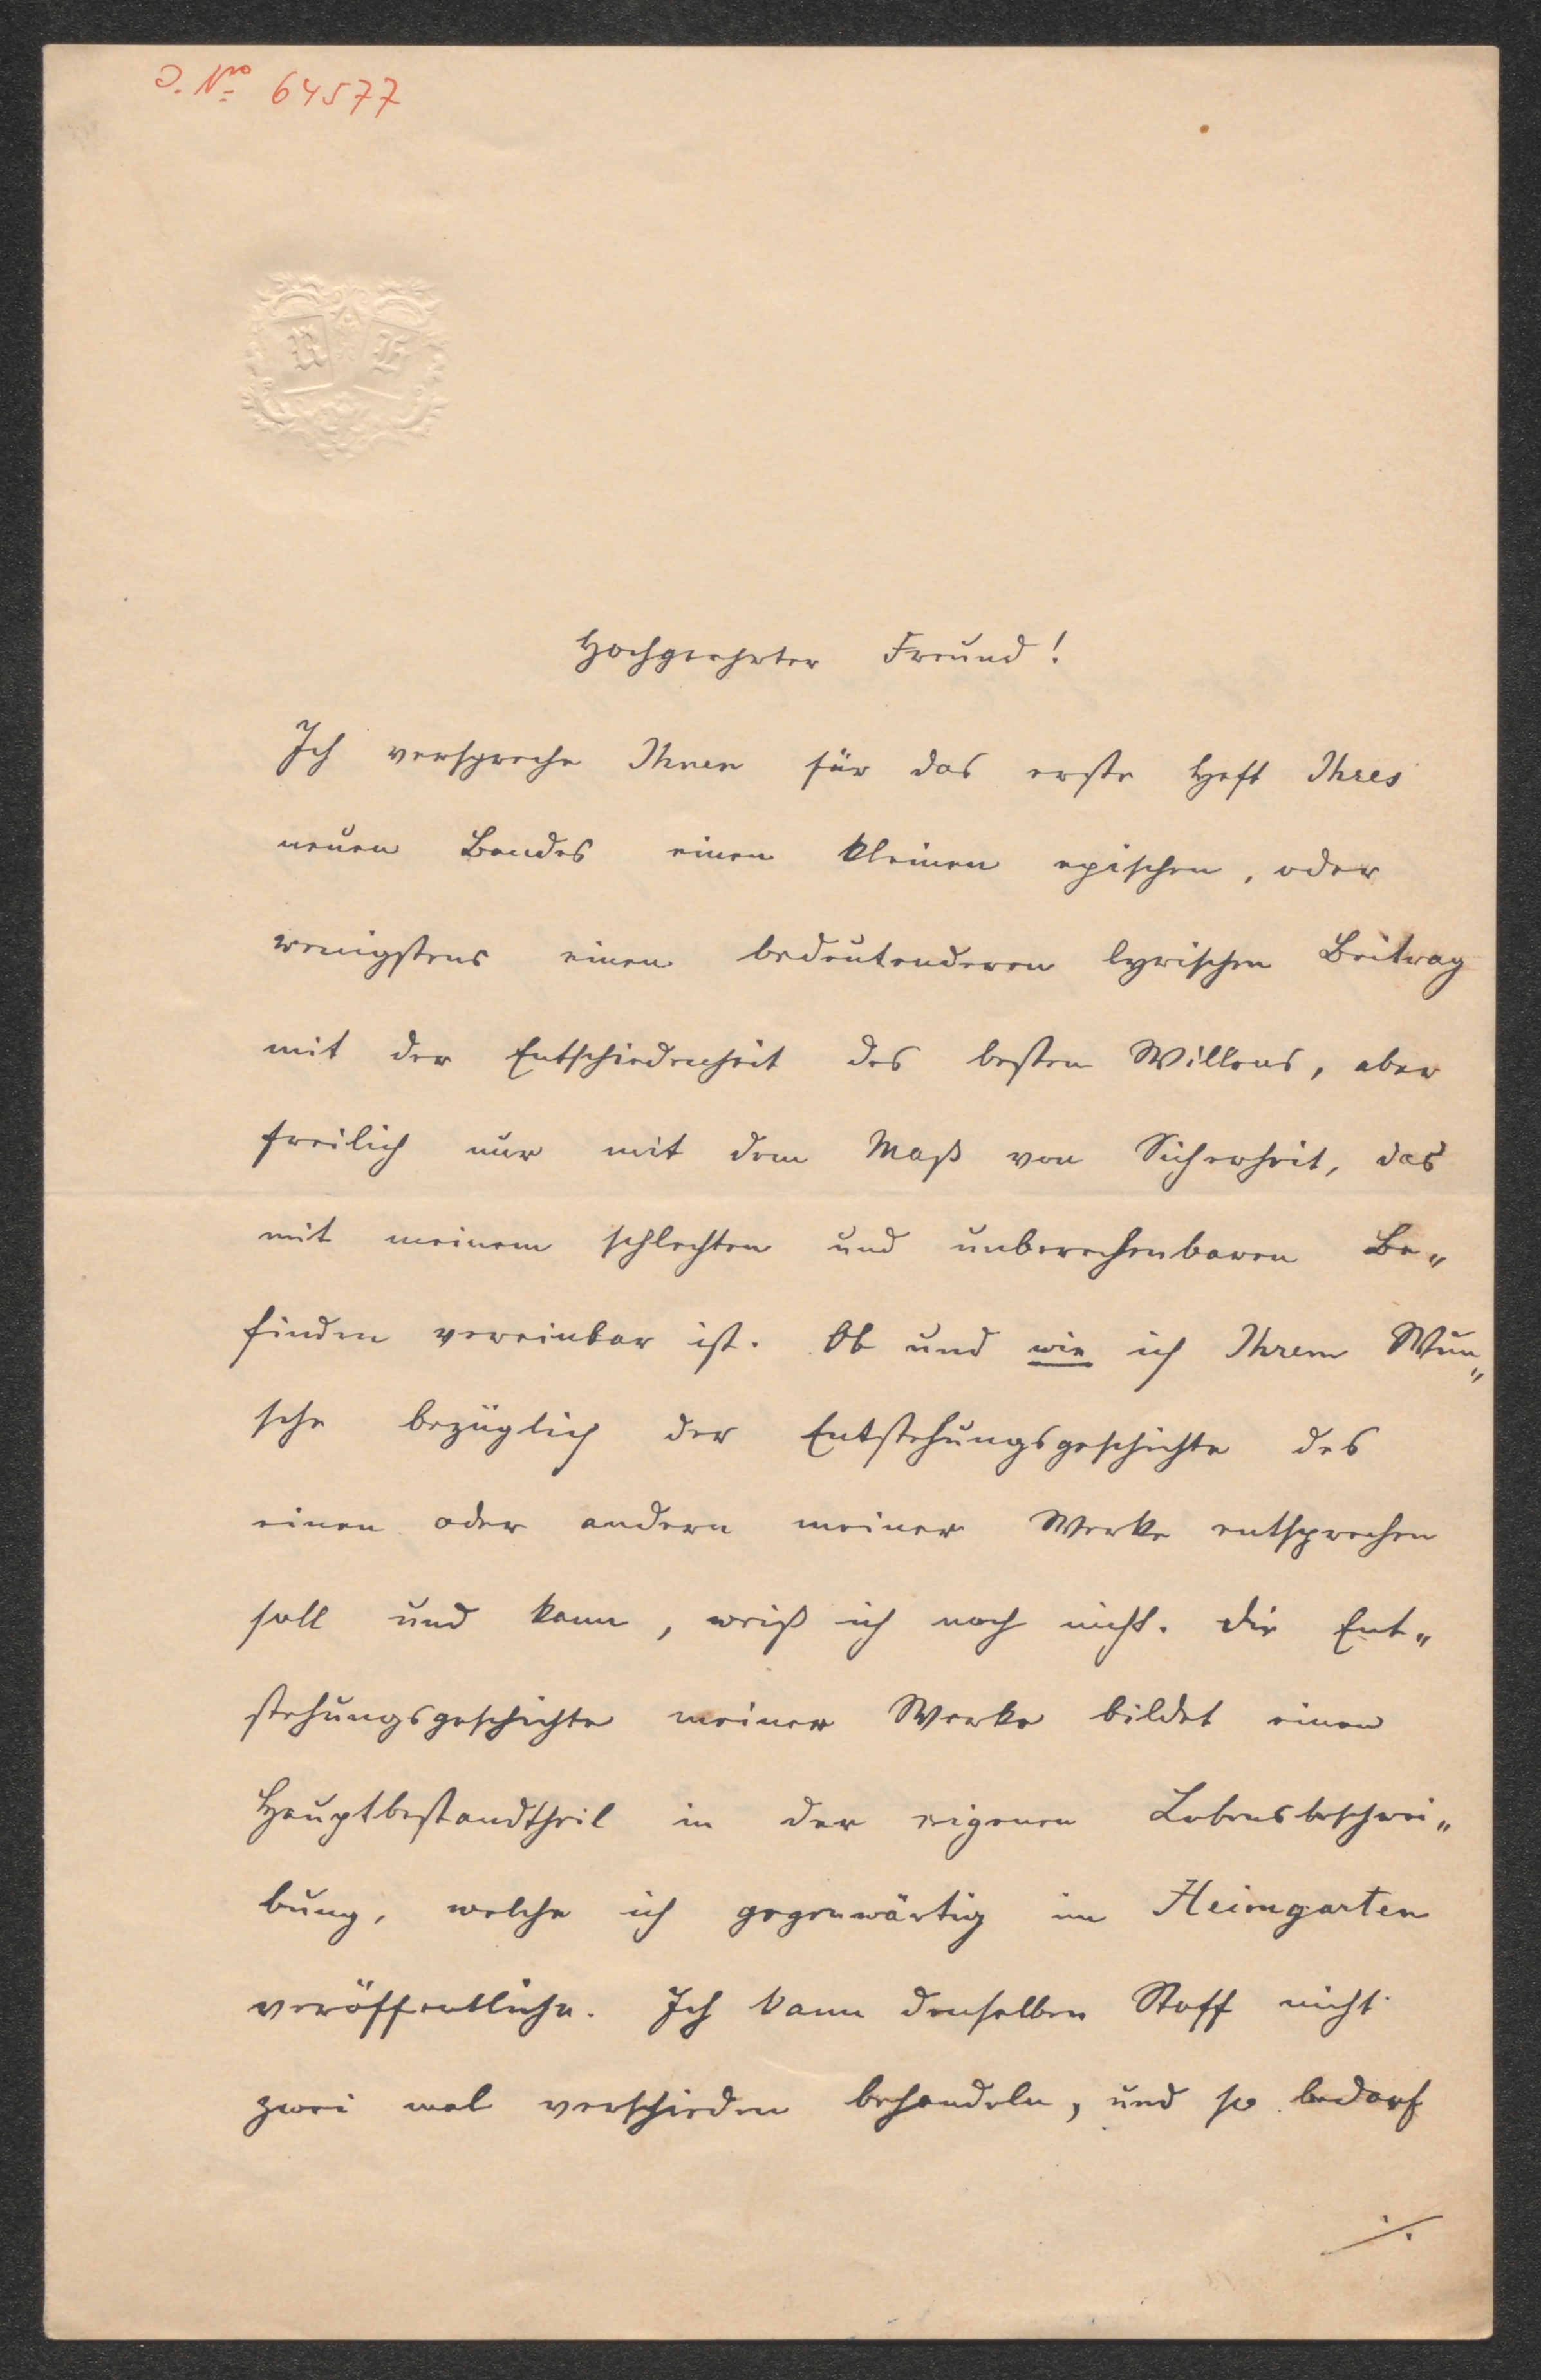 J. Nro 64577
Hochgeehrter Freund!
Ich verspreche Ihnen für das erste Heft Ihres
neuen Bandes einen kleinen epischen, oder
wenigstens einen bedeutenderen lyrischen Beitrag
mit der Entschiedenheit des besten Willens, aber
freilich nur mit dem Maß von Sicherheit, das
mit meinem schlechten und unberechenbaren Be„
finden vereinbar ist. Ob und wie ich Ihrem Wun„
sche bezüglich der Entstehungsgeschichte des
einen oder andern meiner Werke entsprechen
soll und kann, weiß ich noch nicht. Die Ent„
stehungsgeschichte meiner Werke bildet einen
Hauptbestandtheil in der eigenen Lebensbeschrei„
bung, welche ich gegenwärtig im Heimgarten
veröffentliche. Ich kann denselben Stoff nicht
zwei mal verschieden behandeln, und so bedarf
./.